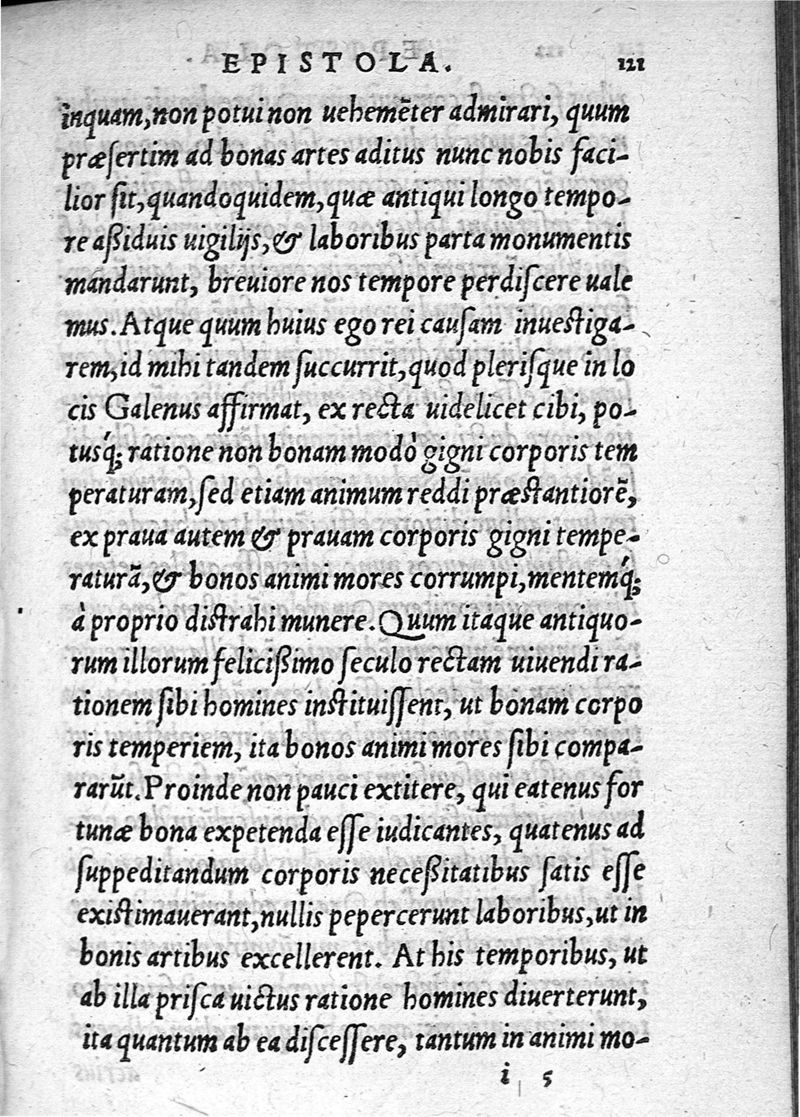 EPISTOLA. 121
inquam, non potui non uehemēter admirari, quum
præſertim ad bonas artes aditus nunc nobis faci-
lior ſit, quandoquidem, quæ antiqui longo tempo-
re aßiduis uigilijs, & laboribus parta monumentis
mandarunt, breuiore nos tempore perdiſcere uale
mus. Atque quum huius ego rei cauſam inueſtiga-
rem, id mihi tandem ſuccurrit, quod pleriſque in lo
cis Galenus affirmat, ex recta uidelicet cibi, po-
tusq́; ratione non bonam modò gigni corporis tem
peraturam, ſed etiam animum reddi præſtantiorē,
ex praua autem & prauam corporis gigni tempe-
raturā, & bonos animi mores corrumpi, mentemq́;
à proprio diſtrahi munere. Quum itaque antiquo-
rum illorum felicißimo ſeculo rectam uiuendi ra-
tionem ſibi homines inſtituiſſent, ut bonam corpo
ris temperiem, ita bonos animi mores ſibi compa-
rarūt. Proinde non pauci extitere, qui eatenus for
tunæ bona expetenda eſſe iudicantes, quatenus ad
ſuppeditandum corporis neceßitatibus ſatis eſſe
exiſtimauerant, nullis pepercerunt laboribus, ut in
bonis artibus excellerent. At his temporibus, ut
ab illa priſca uictus ratione homines diuerterunt,
ita quantum ab ea diſceſſere, tantum in animi mo-
i 5